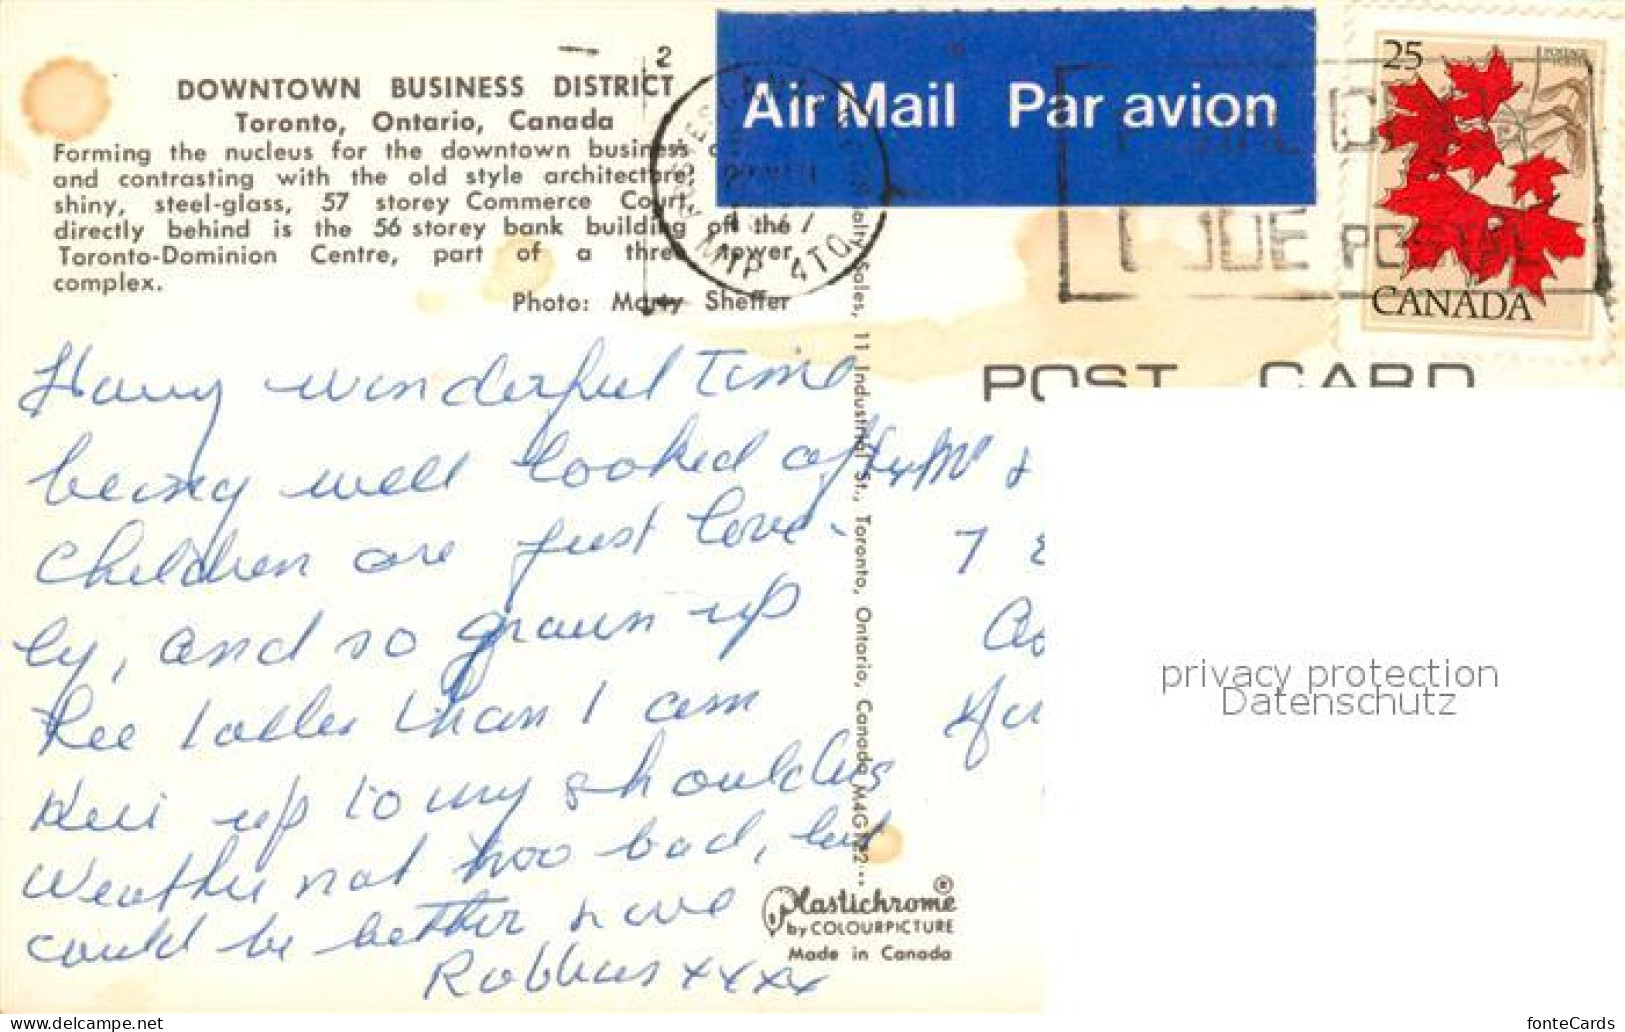 2
DOWNTOWN BUSINESS DISTRICT
Toronto, Ontario, Canada
Forming the nucleus for the downtown business
and contrasting with the old style architecture,
shiny, steel-glass, 57 storey Commerce Court,
directly behind is the 56 storey bank building of the
Toronto-Dominion Centre, part of a three tower
complex.
Photo: Marty Sheffer
Air Mail Par avion
25
POSTAGE
POSTES
CANADA
POSTAL
POST CARD
Having wonderful time
being well looked after
children are just love-
ly, and so grown up
Lee taller than I am
Keri up to my shoulders
Weather not too bad, but
could be better love
Robbies xxxx
Mr &
7
Sales, 11 Industrial St., Toronto, Ontario, Canada M4G
Plastichrome®
by COLOURPICTURE
Made in Canada
privacy protection
Datenschutz
www.delcampe.net
fonteCards